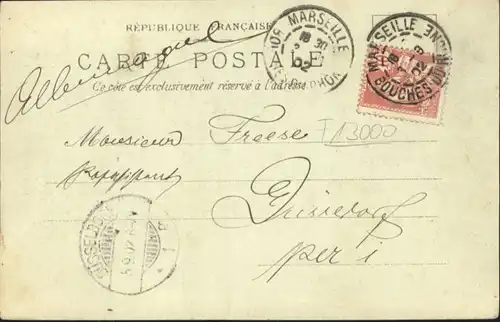 RÉPUBLIQUE FRANÇAISE
CARTE POSTALE
Ce côté est exclusivement réservé à l'adresse
Allemagne
MARSEILLE
18 30
02
MARSEILLE
BOUCHES DU RHONE
Monsieur Freese
T 13000
Düsseldorf
per i
DÜSSELDORF
5.9.02
1